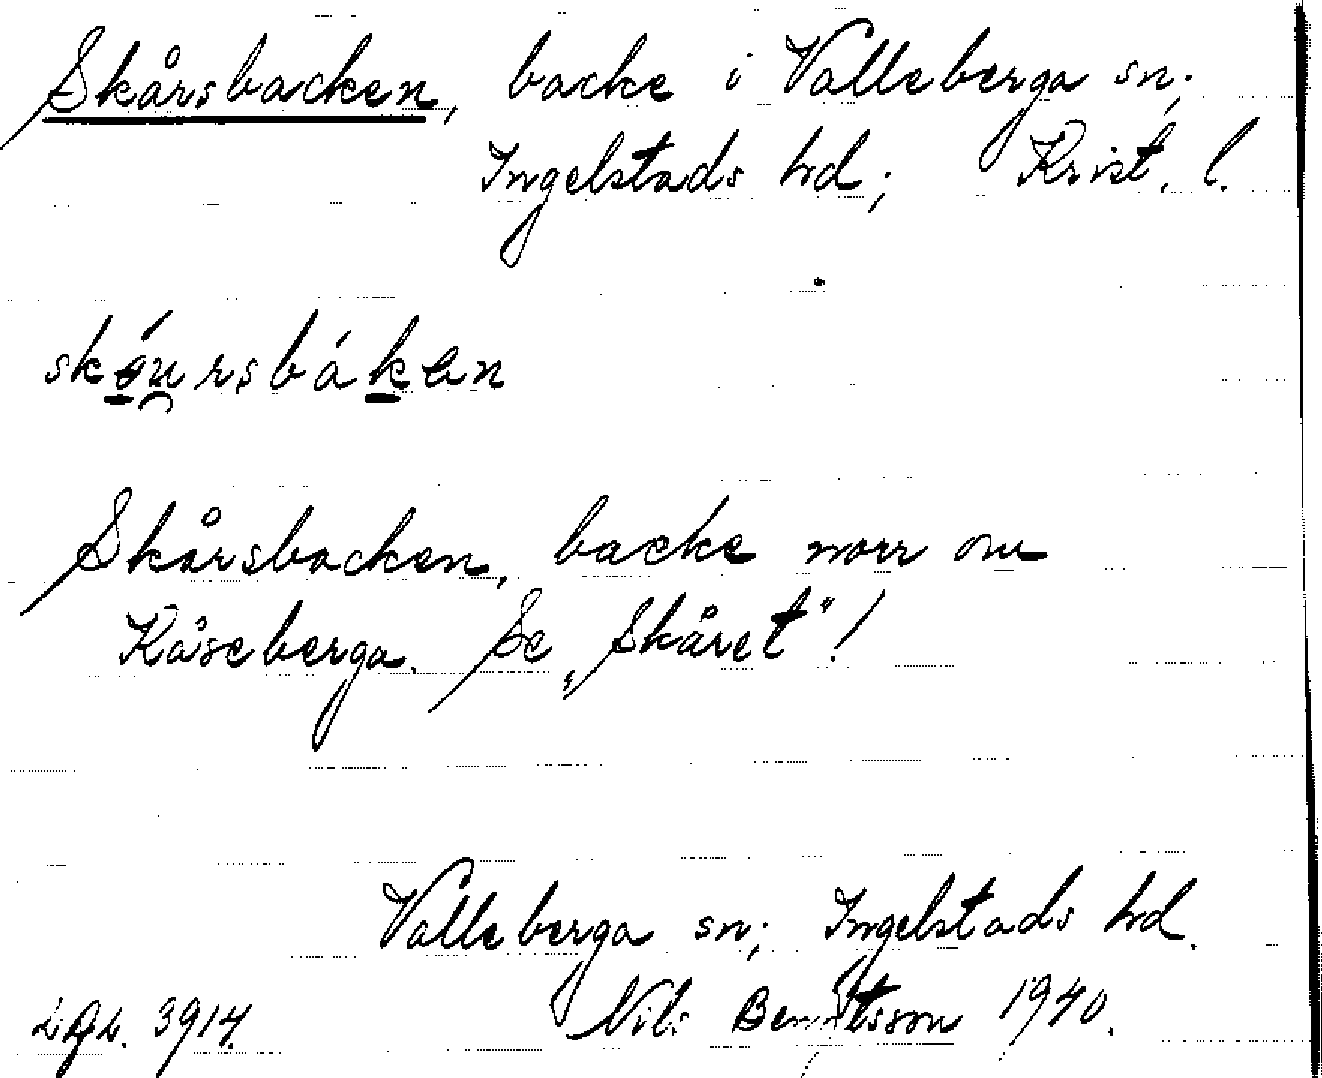 Skårsbacken, backe i Valleberga sn;
Ingelstads hd; Krist. l.
skóursbákan
Skårsbacken, backe norr om
Kåseberga. Se „Skåret"!
Valleberga sn; Ingelstads hd.
Nils Bengtsson 1940.
3914.